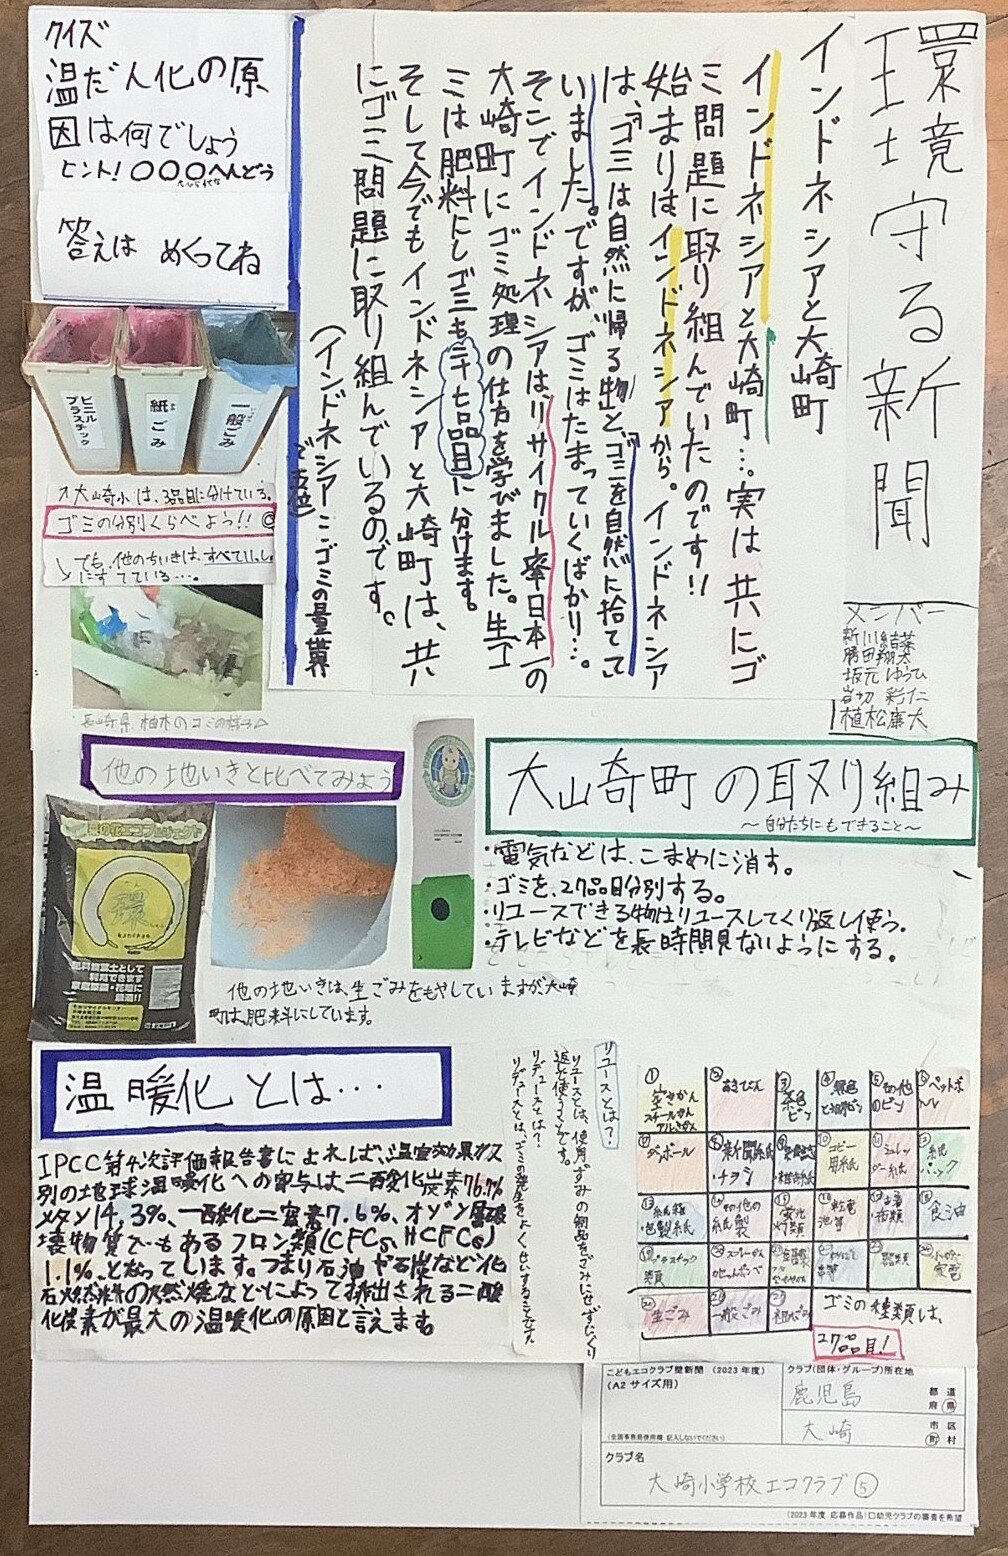 環境守る新聞
インドネシアと大崎町
インドネシアと大崎町…。実は共にゴ
ミ問題に取り組んでいたのです!!
始まりはインドネシアから。インドネシア
は、「ゴミは自然に帰る物」と「ゴミを自然に捨てて
いました。ですが、ゴミはたまっていくばかり…。
そこでインドネシアは、リサイクル率日本一の
大崎町にゴミ処理の仕方を学びました。生ゴ
ミは肥料にしゴミも二十七品目に分けます。
そして今でもインドネシアと大崎町は、共
にゴミ問題に取り組んでいるのです。
(インドネシア=ゴミの量世界
で五位)
メンバー
新川結菜
勝田翔太
坂元ゆうひ
岩切彩仁
植松康大
クイズ
温だん化の原
因は何でしょう
ヒント!〇〇〇へんどう
答えは めくってね
ビニル
プラスチック
紙ごみ
一般ごみ
大崎小は、3品目に分けている。
ゴミの分別くらべよう!!
でも、他のちいきは、すべていっしょ
にすてている…。
長崎県 柚木のゴミの様子
他の地いきと比べてみよう
菜の花エコプロジェクト
環
肥料富士として
利用できます
他の地いきは、生ごみをもやしていますが、大崎
町は、肥料にしています。
大崎町の取り組み
～自分たちにもできること～
・電気などは、こまめに消す。
・ゴミを、27品目分別する。
・リユースできる物はリユースしてくり返し使う。
・テレビなどを長時間見ないようにする。
温暖化とは…
IPCC第4次評価報告書によれば、温室効果ガス
別の地球温暖化への寄与は、二酸化炭素76.7%
メタン14.3%、一酸化二窒素7.6%、オゾン層破
壊物質でもあるフロン類(CFCs,HCFCs)
1.1%、となっています。つまり石油や石炭など化
石火燃料の燃焼などによって排出される二酸
化炭素が最大の温暖化の原因と言えます。
リユースとは?
リユースとは、使用ずみの物品をごみにせずにくり
返し使うことです。
リデュースとは?
リデュースとは、ゴミの発生をよくせいすることです。
①
空きかん
スチールかん
アルミかん
②
あきびん
③
茶色
ビン
④
⑤
その他
のビン
⑥
ペットボ
トル
⑦
ダンボール
⑧
新聞紙
・チラシ
⑨
雑誌
・雑古紙
⑩
コピー
用紙
⑪
シュレッ
ダー紙
⑫
紙
パック
⑬
紙箱
・包装紙
⑭
その他の
紙製
⑮
蛍光
灯類
⑯
乾電
池等
⑰
古着
・布類
⑱
食油
⑲
プラスチック
類
⑳
スプレーかん
生ごみ
一般ごみ
粗大ごみ
ゴミの種類は、
27品目!
こどもエコクラブ壁新聞 (2023年度)
(A2サイズ用)
(全国事務局使用欄 記入しないでください)
クラブ(団体・グループ)所在地
鹿児島
都 道
府 県
大崎
市 区
町 村
クラブ名
大崎小学校エコクラブ⑤
(2023年度 応募作品)□幼児クラブの審査を希望